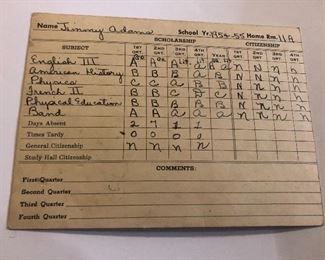 Name Jimmy Adams School Yr. 1954-55 Home Rm. 11A
SCHOLARSHIP CITIZENSHIP
SUBJECT 1ST QRT. 2ND QRT. 3RD QRT. 4TH QRT. YEAR 1ST QRT. 2ND QRT. 3RD QRT. 4TH QRT.
English III A A A B A N n n n
American History B B B B B N n n n
Physics C C B A B N N n n
French II B B C N n n n
Physical Education B B B B B N n n n
Band A A A A A N n n n
Days Absent 2 7 1 1
Times Tardy 0 0 0 0
General Citizenship n n n n
Study Hall Citizenship
COMMENTS:
First Quarter
Second Quarter
Third Quarter
Fourth Quarter